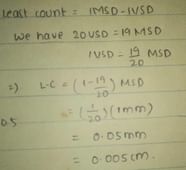 Least count = 1MSD - 1VSD
We have 20VSD = 19 MSD
1VSD = 19/20 MSD
=) L.C = (1-19/20) MSD
0.5
= (1/20) (1mm)
= 0.05mm
= 0.005cm.